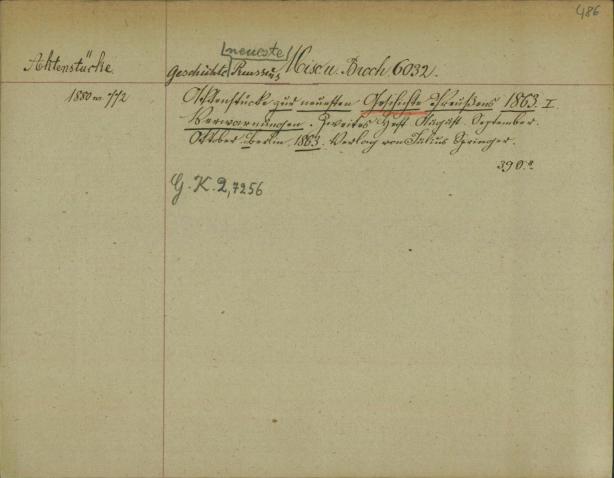 486
(neueste)
Aktenstücke. Geschichte Preussens Misc u. Broch. 6032.
1880 n 772 Aktenstücke zur neuesten Geschichte Preußens 1863. I.
Verwarnungen. Zweites Heft August. September.
Oktober. Berlin 1863. Verlag von Julius Springer.
390.
G. K. 2,7256